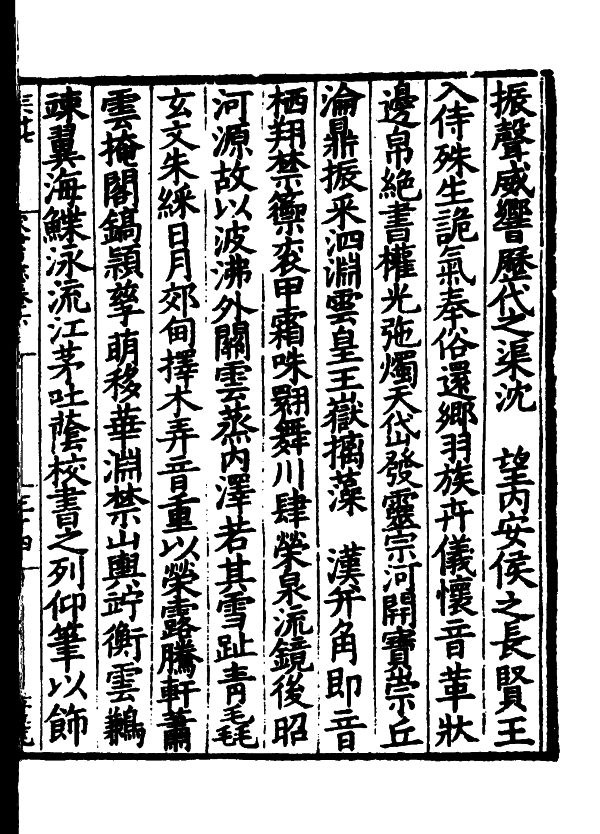 振聲威響歷代之渠沈　望内安侯之長賢王
入侍殊生詭氣奉俗還郷羽族卉儀懷音革狀
邊帛絶書權光弛燭天岱發靈宗河開寶崇丘
淪鼎振采泗淵雲皇王嶽摛藻　漢并角即音
栖翔禁籞衮甲霜咮翾舞川肆榮泉流鏡後昭
河源故以波沸外關雲蒸内澤若其雪趾青毳
玄文朱綵日月郊甸擇木弄音重以榮露騰軒蕭
雲掩閣鎬頴孳萌移華淵禁山輿竚衡雲鶼
竦翼海鰈泳流江茅吐蔭校書之列仰筆以飾